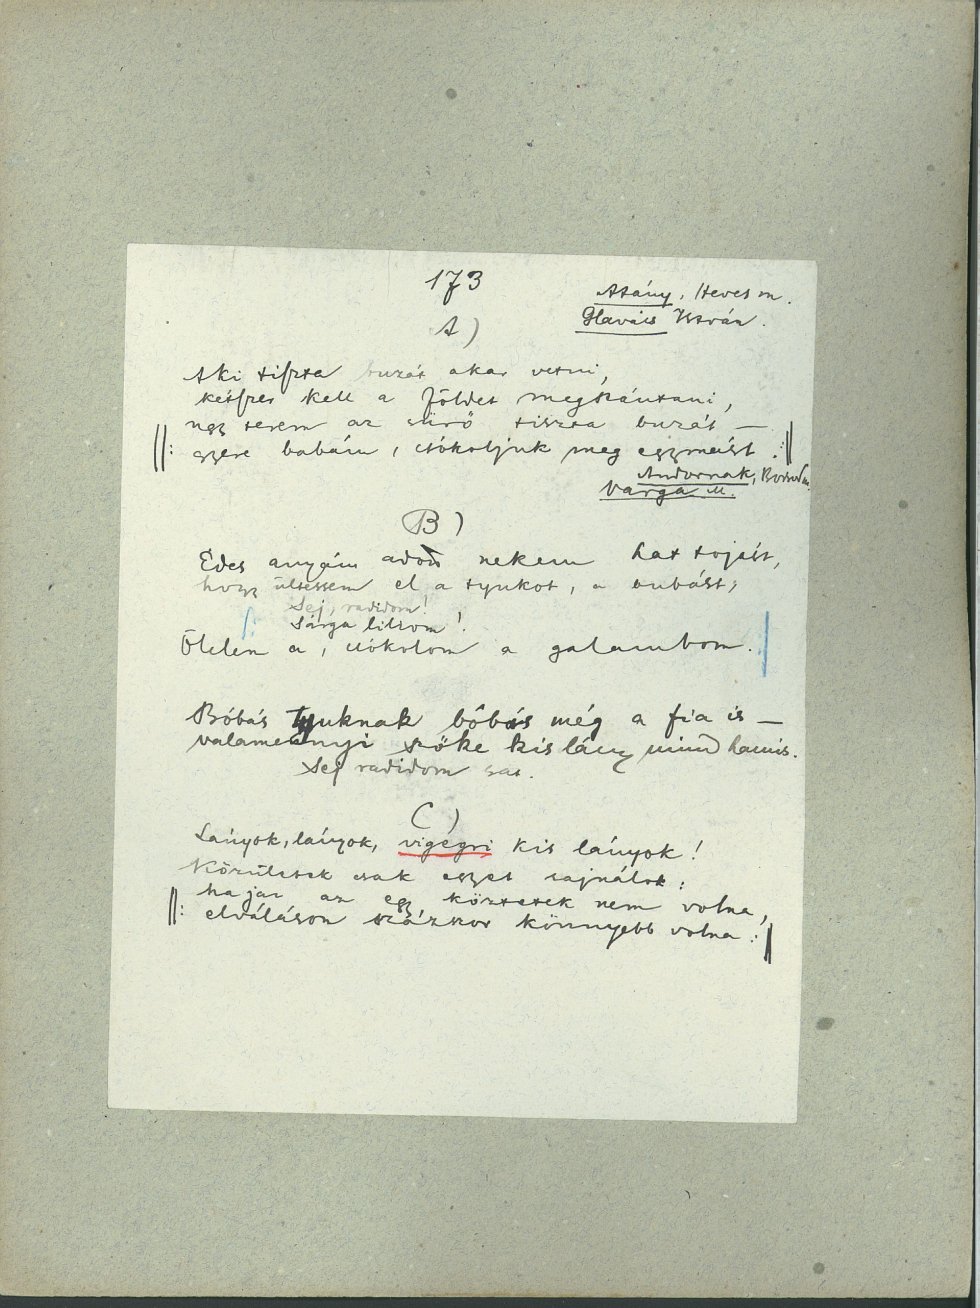 173
Atány, Heves m.
Glavács István.
A)
Aki tiszta buzát akar vetni,
kétszer kell a földet megszántani,
ugy terem az sürő tiszta buzát —
‖: gyere babám, csókoljuk meg egymást :‖
Andornak, Borsod m.
Varga M.
B)
Édes anyám adott nekem hat tojást,
hogy ültessem el a tyukot, a bubást;
Sej, radidom!
Sárga liliom!
Ölelem a, csókolom a galambom.
Bóbás tyuknak bóbás még a fia is —
valamennyi szőke kislány mind hamis.
Sej radidom sat.
C)
Lányok, lányok, vigegri kis lányok!
Közületek csak egyet sajnálok;
‖: ha jaz az egy köztetek nem volna,
elválásom százszor könnyebb volna :‖